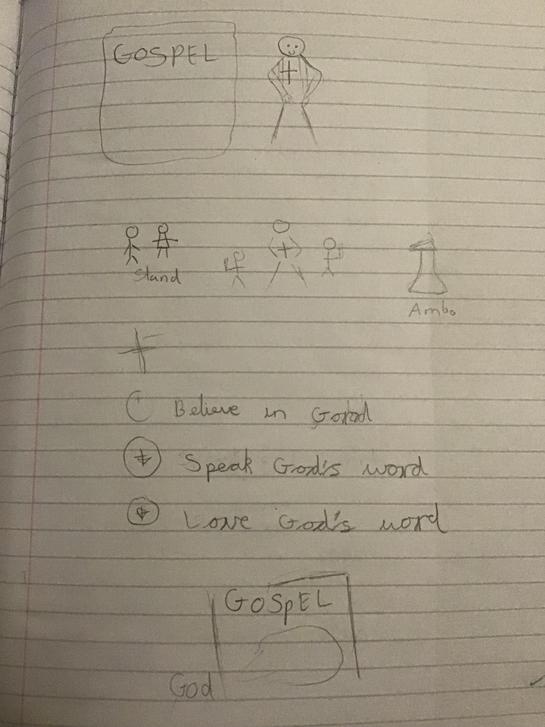 GOSPEL
Stand
Ambo
Believe in God
Speak God's word
Love God's word
GOSpEL
God